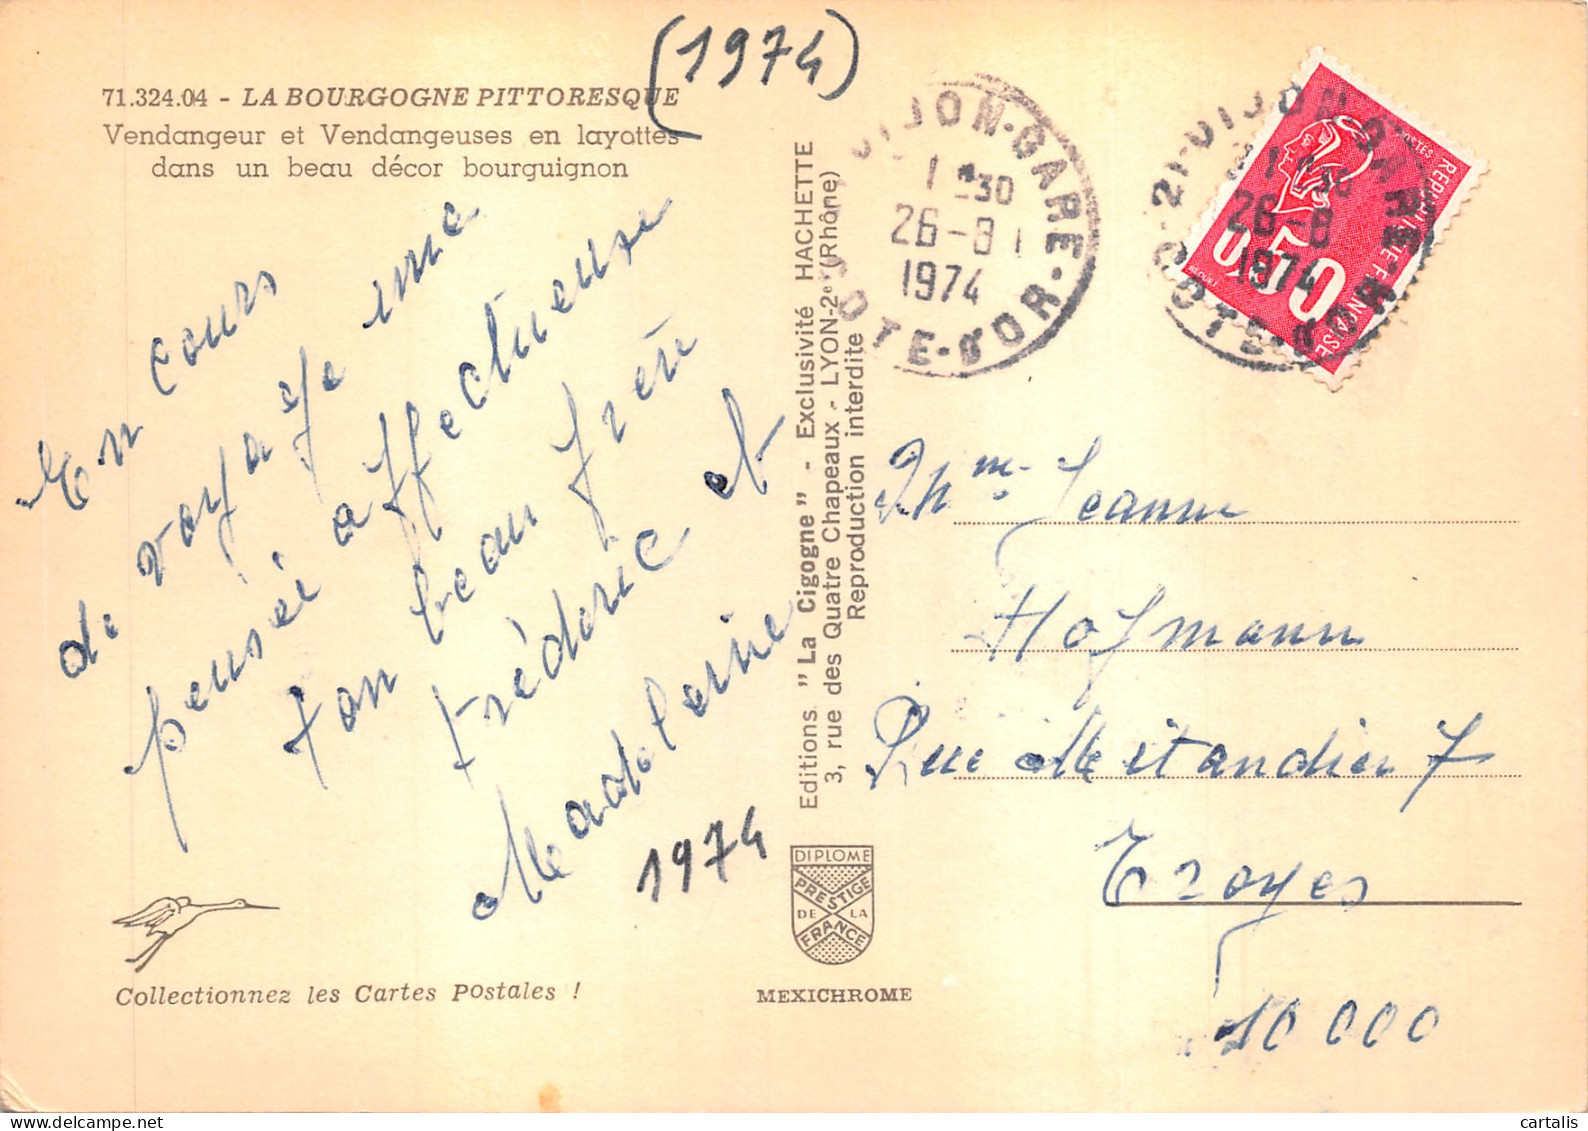 (1974)
71.324.04 - LA BOURGOGNE PITTORESQUE
Vendangeur et Vendangeuses en layottes
dans un beau décor bourguignon
En cours
de voyage une
pensée affectueuse
ton beau frère
Frédéric et
Madeleine
1974
Collectionnez les Cartes Postales !
Editions "La Cigogne" - Exclusivité HACHETTE
3, rue des Quatre Chapeaux - LYON-2e (Rhône)
Reproduction interdite
DIPLOME
PRESTIGE
DE LA
FRANCE
MEXICHROME
DIJON-GARE
1*30
26-8
1974
COTE-D'OR
21-DIJON-GARE
1*30
26-8
1974
COTE-D'OR
POSTES
REPUBLIQUE FRANÇAISE
0,50
Mme Jeanne
Hofmann
Rue 7
Troyes
10000
cartalis